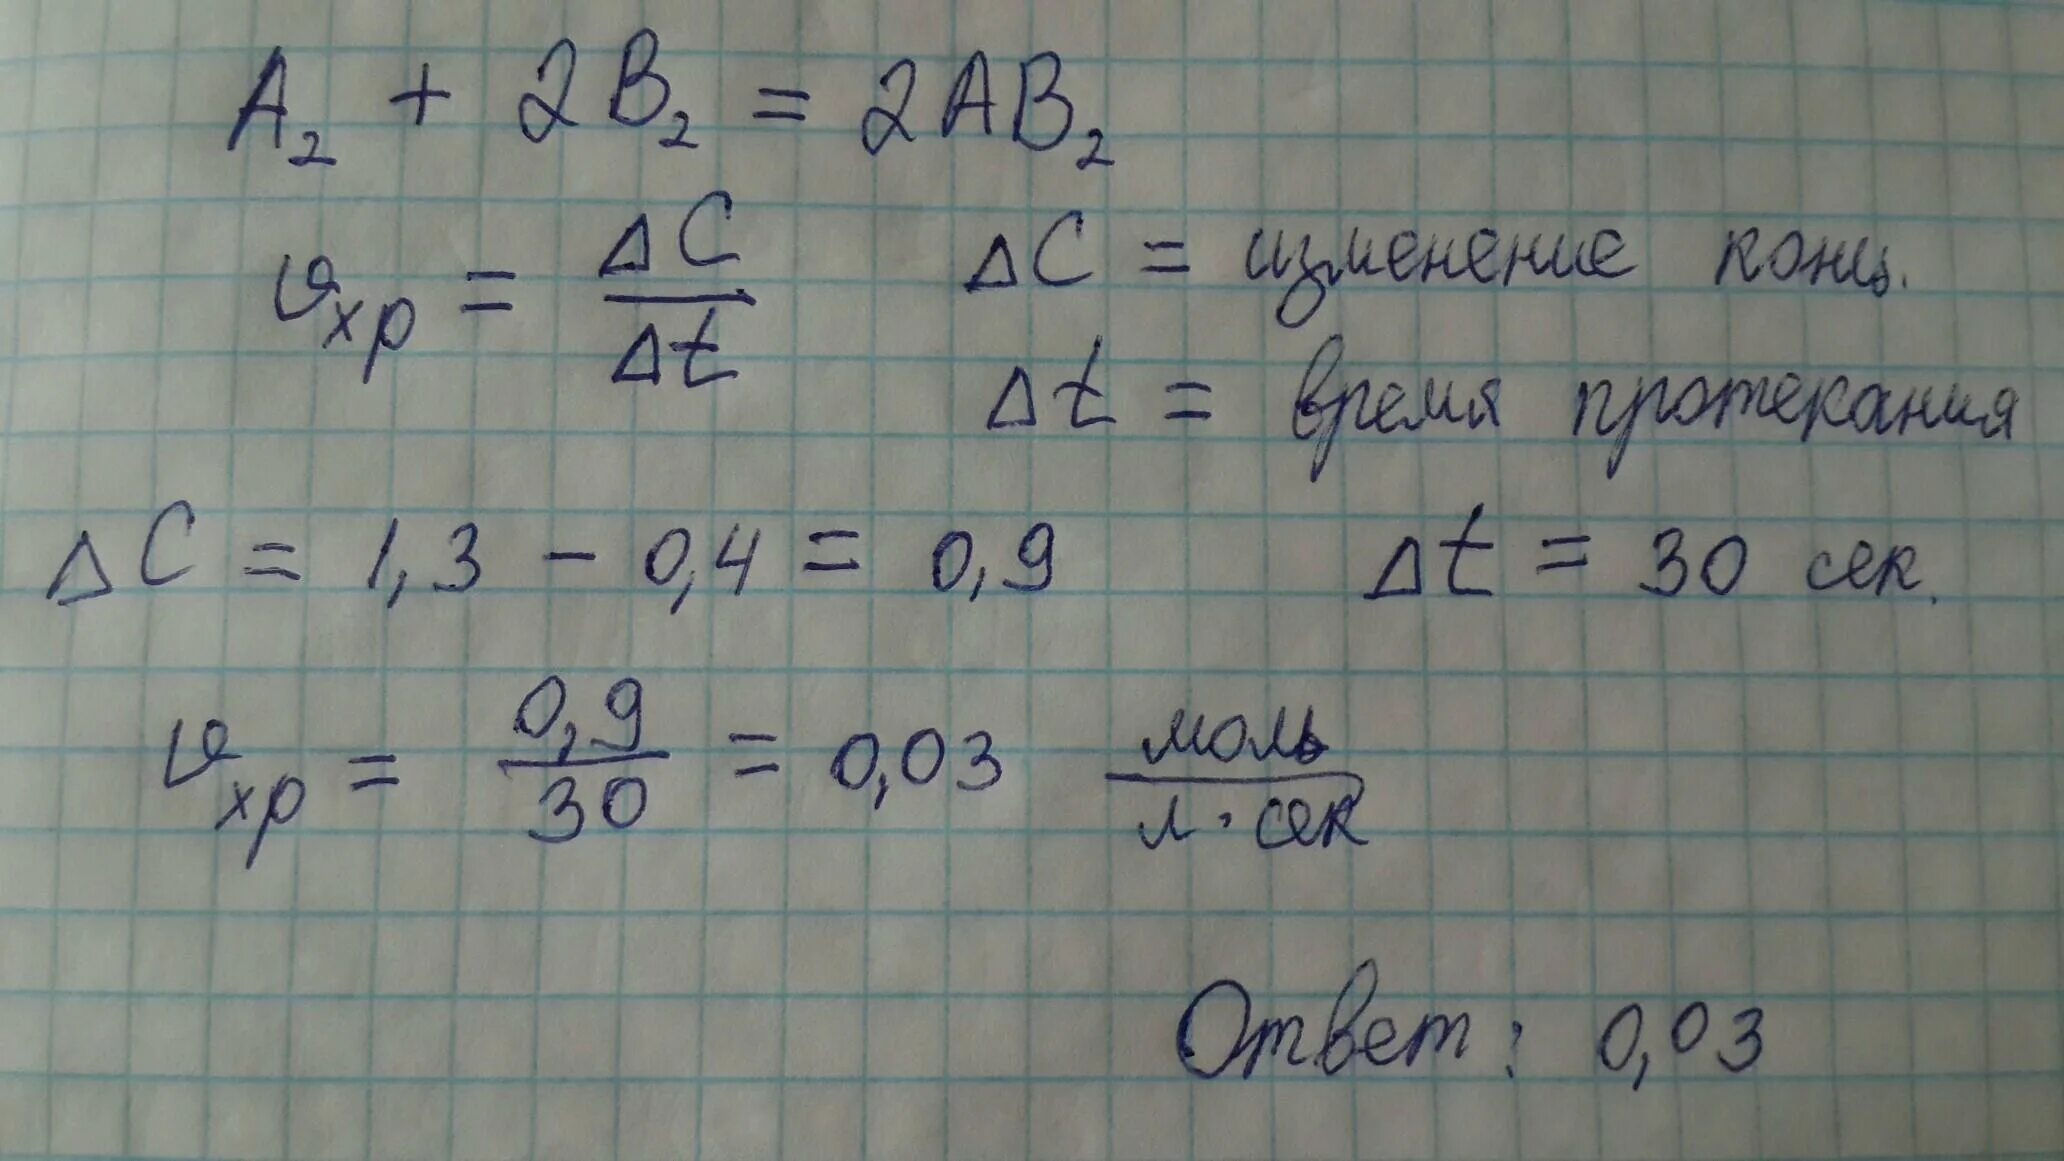 A₂ + 2B₂ = 2AB₂
υхр = ΔC/Δt ΔC = изменение конц.
Δt = время протекания
ΔC = 1,3 - 0,4 = 0,9 Δt = 30 сек.
υхр = 0,9/30 = 0,03 моль/л·сек
Ответ: 0,03